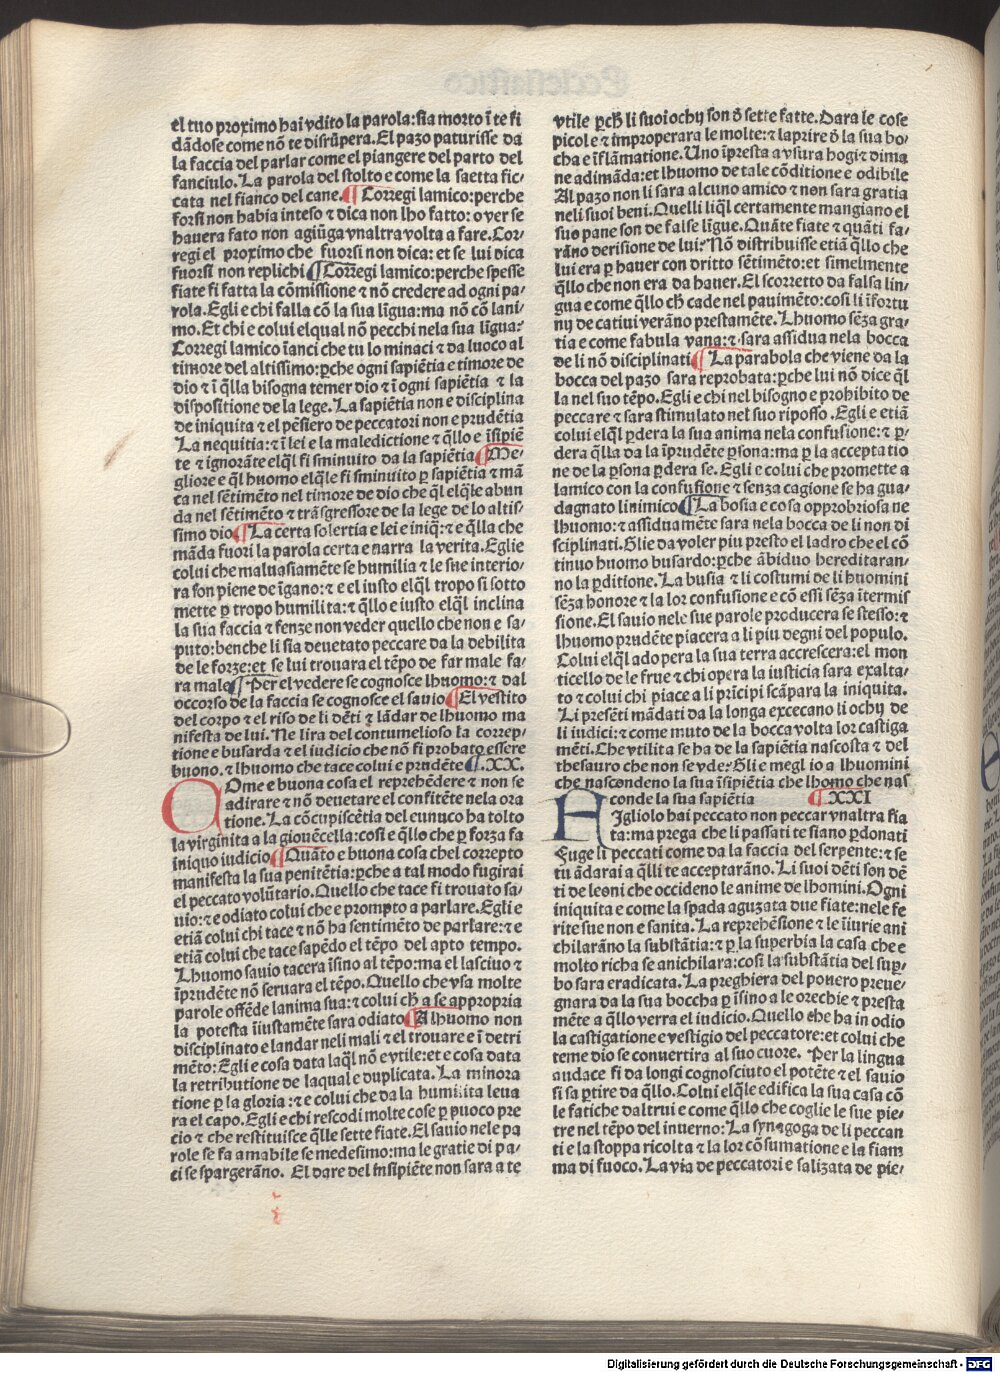 el tuo proximo hai vdito la parola:sia morto ī te fi
dādose come nō te disrūpera.El pazo paturisse da
la faccia del parlar come el piangere del parto del
fanciulo.La parola del stolto e come la saetta fic-
cata nel fianco del cane.¶ Corregi lamico:perche
forsi non habia inteso ⁊ dica non lho fatto: over se
hauera fato non agiūga vnaltra volta a fare.Cor-
regi el proximo che fuorsi non dica: et se lui dica
fuorsi non replichi ¶ Corregi lamico:perche spesse
fiate fi fatta la cōmissione ⁊ nō credere ad ogni pa-
rola.Egli e chi falla cō la sua līgua:ma nō cō lani-
mo.Et chi e colui elqual nō pecchi nela sua līgua?
Corregi lamico īanci che tu lo minaci ⁊ da luoco al
timore del altissimo:ꝑche ogni sapiētia e timore de
dio ⁊ ī q̄lla bisogna temer dio ⁊ ī ogni sapiētia ⁊ la
dispositione de la lege.La sapiētia non e disciplina
de iniquita ⁊ el pēsiero de peccatori non e prudētia
La nequitia:⁊ ī lei e la maledictione ⁊ q̄llo e īsipiē
te ⁊ ignorāte elq̄l fi sminuito da la sapiētia ¶ Me-
gliore e q̄l huomo elq̄le fi sminuito ꝑ sapiētia ⁊ mā
ca nel sētimēto nel timore de dio che q̄l elq̄le abun
da nel sētimēto ⁊ trāsgressore de la lege de lo altis-
simo dio ¶ La certa solertia e lei e iniq̄:⁊ e q̄lla che
māda fuori la parola certa e narra la verita.Eglie
colui che maluasiamēte se humilia ⁊ le sue interio-
ra son piene de īgano:⁊ e el iusto elq̄l tropo si sotto
mette ꝑ tropo humilita:⁊ q̄llo e iusto elq̄l inclina
la sua faccia ⁊ fenze non veder quello che non e sa-
puto:benche li sia deuetato peccare da la debilita
de le forze:et se lui trouara el tēpo de far male fa-
ra male ¶ Per el vedere se cognosce lhuomo:⁊ dal
occorso de la faccia se cognosce el sauio ¶ El vestito
del corpo ⁊ el riso de li dēti ⁊ lādar de lhuomo ma
nifesta de lui. Ne lira del contumelioso la correp-
tione e busarda ⁊ el iudicio che nō fi probato essere
buono.⁊ lhuomo che tace colui e prudēte ¶.XX.
COme e buona cosa el reprehēdere ⁊ non se
adirare ⁊ nō deuetare el confitēte nela ora
tione.La cōcupiscētia del eunuco ha tolto
la virginita a la giouēcella:cosi e q̄llo che ꝑ forza fa
iniquo iudicio ¶ Quāto e buona cosa chel correpto
manifesta la sua penitētia:ꝑche a tal modo fugirai
el peccato volūtario.Quello che tace fi trouato sa-
uio:⁊ e odiato colui che e prompto a parlare.Egli e
etiā colui chi tace ⁊ nō ha sentimēto de parlare:⁊ e
etiā colui che tace sapēdo el tēpo del apto tempo.
Lhuomo sauio tacera īsino al tēpo:ma el lasciuo ⁊
īprudēte nō seruara el tēpo.Quello che vsa molte
parole offēde lanima sua:⁊ colui ch̄ a se appropria
la potesta īiustamēte sara odiato ¶ A lhuomo non
disciplinato e landar neli mali ⁊ el trouare e ī detri
mēto:Egli e cosa data laq̄l nō e vtile:et e cosa data
la retributione de laqual e duplicata. La minora
tione ꝑ la gloria :⁊ e colui che da la humilita leua
ra el capo.Egli e chi rescodi molte cose ꝑ puoco pre
cio ⁊ che restituisce q̄lle sette fiate.El sauio nele pa
role se fa amabile se medesimo:ma le gratie di pa-
ci se spargerāno. El dare del insipiēte non sara a te
vtile ꝑch̄ li suoi ochij son d̄ sette fatte.Dara le cose
picole ⁊ improperara le molte:⁊ laprire d̄ la sua bo-
cha e īflāmatione.Uno īpresta a vsura hogi ⁊ dima
ne adimāda:et lhuomo de tale cōditione e odibile
Al pazo non li sara alcuno amico ⁊ non sara gratia
neli suoi beni.Quelli liq̄l certamente mangiano el
suo pane son de false līgue.Quāte fiate ⁊ quāti fa-
rāno derisione de lui? Nō distribuisse etiā q̄llo che
lui era ꝑ hauer con dritto sētimēto:et simelmente
q̄llo che non era da hauer.El scorretto da falsa lin-
gua e come q̄llo ch̄ cade nel pauimēto:cosi li īfortu
nij de catiui verāno prestamēte.Lhuomo sēza gra-
tia e come fabula vana:⁊ sara assidua nela bocca
de li nō disciplinati ¶ La parabola che viene da la
bocca del pazo sara reprobata:ꝑche lui nō dice q̄l
la nel suo tēpo.Egli e chi nel bisogno e prohibito de
peccare ⁊ sara stimulato nel suo riposso .Egli e etiā
colui elq̄l ꝑdera la sua anima nela confusione:⁊ ꝑ-
dera q̄lla da la īprudēte ꝑsona:ma ꝑ la acceptatio
ne de la ꝑsona ꝑdera se. Egli e colui che promette a
lamico con la confusione ⁊ senza cagione se ha gua-
dagnato linimico ¶ La bosia e cosa opprobriosa ne
lhuomo:⁊ assiduamēte sara nela bocca de li non di
sciplinati.Glie da voler piu presto el ladro che el cō
tinuo huomo busardo:ꝑche ābiduo hereditaran-
no la ꝑditione.La busia ⁊ li costumi de li huomini
sēza honore ⁊ la lor confusione e cō essi sēza ītermis
sione.El sauio nele sue parole producera se stesso:⁊
lhuomo prudēte piacera a li piu degni del populo.
Colui elq̄l adopera la sua terra accrescera:el mon
ticello de le frue ⁊ chi opera la iusticia sara exalta-
to ⁊ colui chi piace a li prīcipi scāpara la iniquita.
Li presēti māndati da la longa excecano li ochij de
li iudici:⁊ come muto de la bocca volta lor castiga
mēti.Che vtilita se ha de la sapiētia nascosta ⁊ del
thesauro che non se vde? Gli e meglio a lhuomini
che nascondeno la sua īsipiētia che lhomo che nas
conde la sua sapiētia ¶ XXI
FIgliolo hai peccato non peccar vnaltra fia
ta:ma prega che li passati te siano ꝑdonati
Fuge li peccati come da la faccia del serpente:⁊ se
tu ādarai a q̄lli te acceptarāno.Li suoi dēti son dē
ti de leoni che occideno le anime de lhomini.Ogni
iniquita e come la spada aguzata due fiate:nele fe
rite sue non e sanita.La reprehēsione ⁊ le īiurie ani
chilarāno la substātia:⁊ ꝑ la superbia la casa che e
molto richa se anichilara:cosi la substātia del suꝑ-
bo sara eradicata.La preghiera del pouero preue-
gnara da la sua boccha ꝑ īsino a le orechie ⁊ presta
mēte a q̄llo verra el iudicio.Quello che ha in odio
la castigatione e vestigio del peccatore:et colui che
teme dio se convertira al suo cuore. Per la lingua
audace fi da longi cognosciuto el potēte ⁊ el sauio
fi sa ꝑtire da q̄llo.Colui elq̄le edifica la sua casa cō
le fatiche daltrui e come q̄llo che coglie le sue pie-
tre nel tēpo del inuerno:La synagoga de li peccan
ti e la stoppa ricolta ⁊ la lor cōsumatione e la fiam
ma di fuoco.La via de peccatori e salizata de pie-
Digitalisierung gefördert durch die Deutsche Forschungsgemeinschaft - DFG